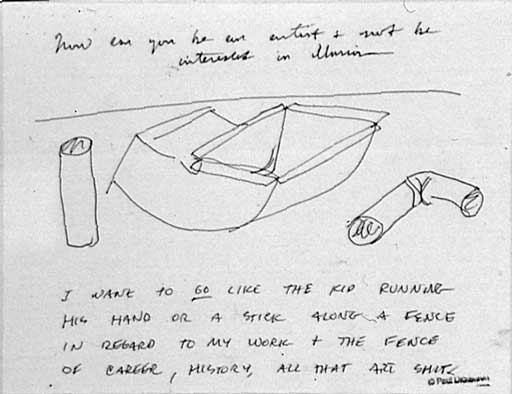 How can you be an artist & not be
interested in illusion
I WANT TO GO LIKE THE KID RUNNING
HIS HAND OR A STICK ALONG A FENCE
IN REGARD TO MY WORK + THE FENCE
OF CAREER, HISTORY, ALL THAT ART SHIT.
© Paul